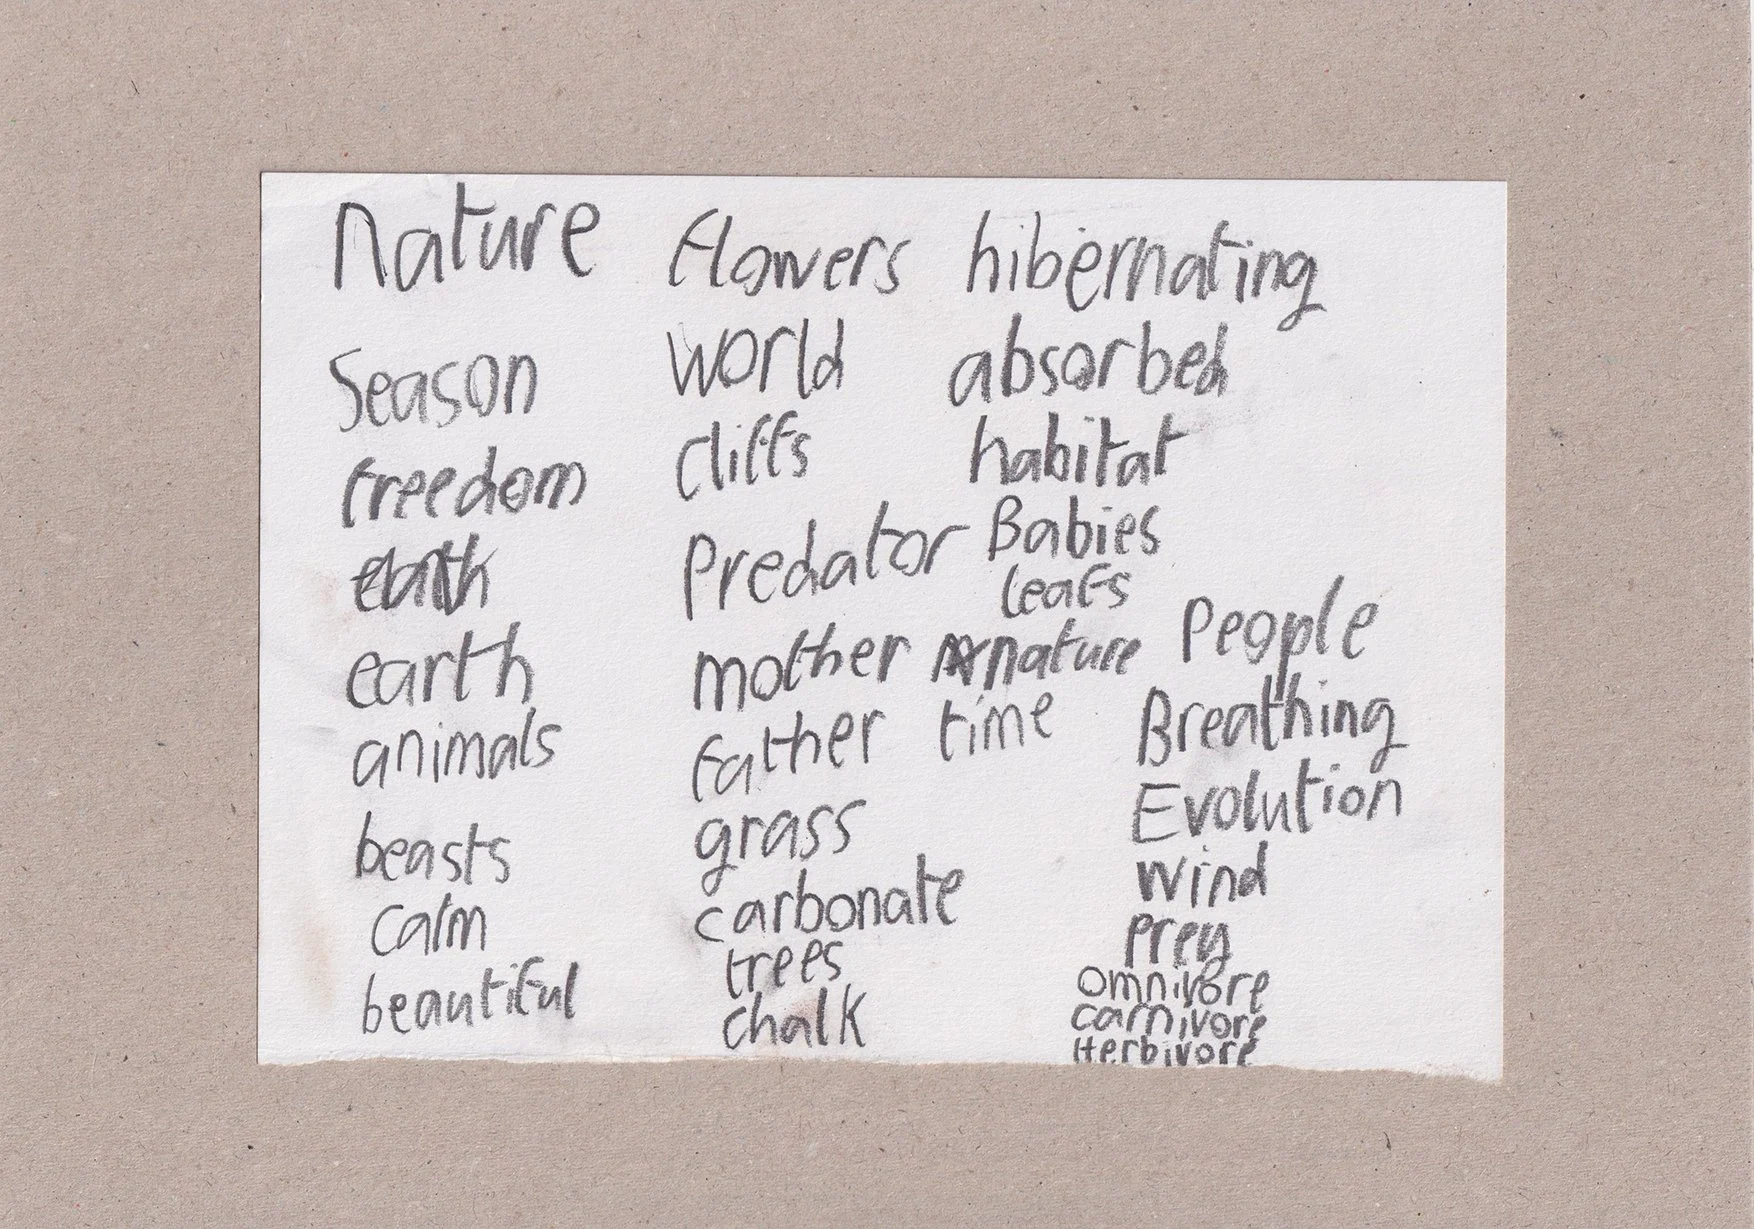 Nature
Season
freedom
earth
animals
beasts
calm
beautiful
flowers
world
cliffs
Predator
mother nature
father time
grass
carbonate
trees
chalk
hibernating
absorbed
habitat
Babies
leafs
People
Breathing
Evolution
wind
Prey
omnivore
carnivore
Herbivore